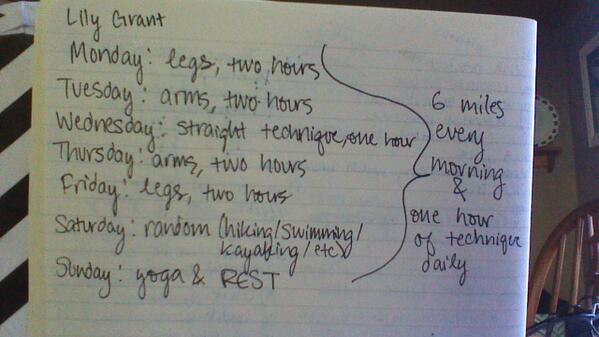 Lily Grant
Monday: legs, two hours
Tuesday: arms, two hours
Wednesday: straight technique, one hour
Thursday: arms, two hours
Friday: legs, two hours
Saturday: random (hiking/swimming/
kayaking/etc)
Sunday: yoga & REST
6 miles
every
morning
&
one hour
of technique
daily